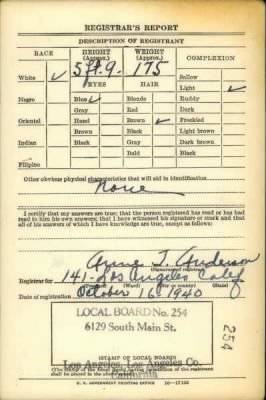 REGISTRAR'S REPORT
DESCRIPTION OF REGISTRANT
RACE HEIGHT (Approx.) WEIGHT (Approx.) COMPLEXION
5 ft. 9. 175
White ✓ EYES HAIR Sallow
Light ✓
Negro Blue ✓ Blonde Ruddy
Gray Red Dark
Oriental Hazel Brown ✓ Freckled
Brown Black Light brown
Indian Black Gray Dark brown
Bald Black
Filipino
Other obvious physical characteristics that will aid in identification
None
I certify that my answers are true; that the person registered has read or has had
read to him his own answers; that I have witnessed his signature or mark and that
all of his answers of which I have knowledge are true, except as follows:
Anderson
(Signature of registrar)
Registrar for 141 - Los Angeles Calif
(Precinct) (Ward) (City or county) (State)
Date of registration October 16 1940
LOCAL BOARD No. 254
6129 South Main St.
254
(STAMP OF LOCAL BOARD)
Los Angeles, Los Angeles Co.
California
U. S. GOVERNMENT PRINTING OFFICE 16—17105